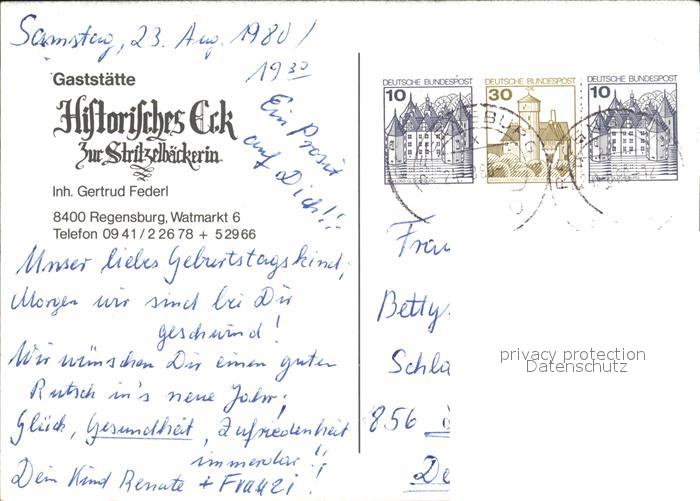 Samstag, 23. Aug. 1980 /
19 30
Ein Prosit
auf Dich!!
Gaststätte
Historisches Eck
Zur Stritzelbäckerin
Inh. Gertrud Federl
8400 Regensburg, Watmarkt 6
Telefon 09 41 / 2 26 78 + 5 29 66
Unser liebes Geburtstagskind,
Morgen wir sind bei Dir
geschwind!
Wir wünschen Dir einen guten
Rutsch in's neue Jahr;
Glück, Gesundheit, Zufriedenheit
immerdar!!
Dein Kind Renate + Franzi!
DEUTSCHE BUNDESPOST
10
DEUTSCHE BUNDESPOST
30
DEUTSCHE BUNDESPOST
10
Frau
Betty
Schla
856
De
privacy protection
Datenschutz